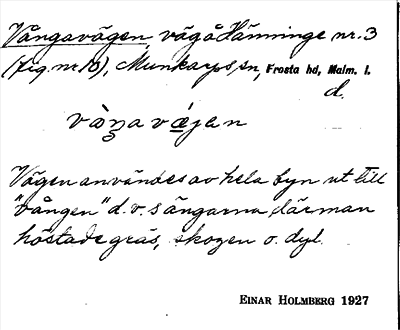 Vångavägen, väg å Hänninge nr. 3
(fig. nr 10), Munkarps sn, Frosta hd, Malm. l.
d.
Vägen användes av hela byn ut till
"vången" d.v.s ängarna, där man
höstade gräs, skogen o. dyl.
EINAR HOLMBERG 1927